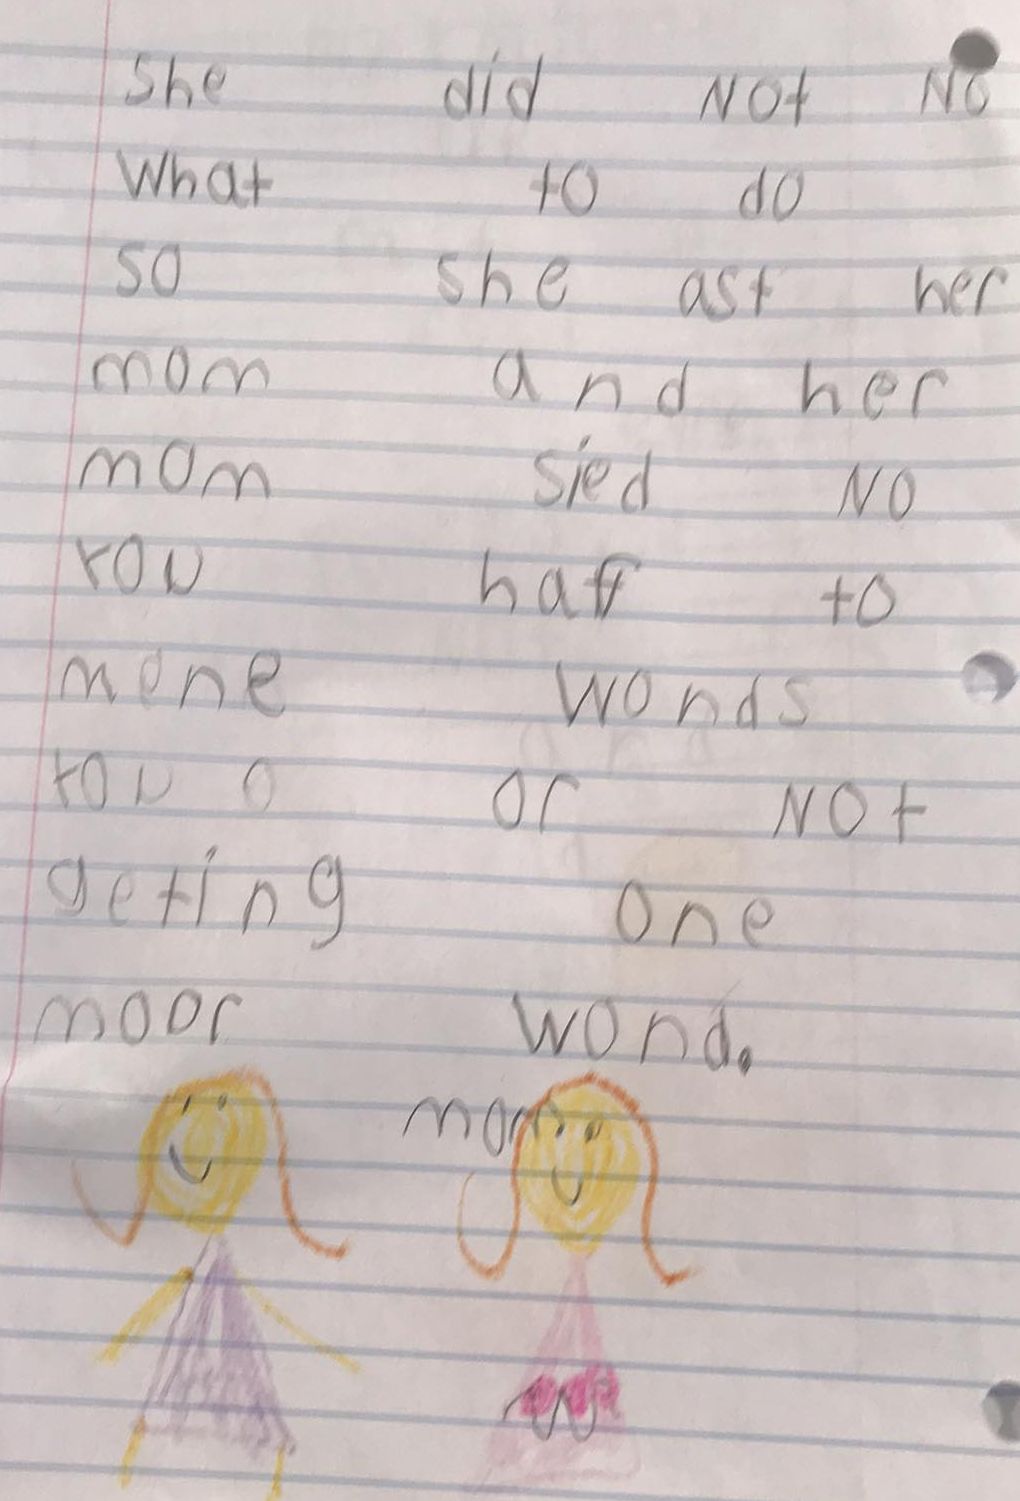 She did Not No
What to do
so she ast her
mom and her
mom sied NO
YOU haff to
mene wonds
YOU o or NOt
geting One
moor wond.
mom